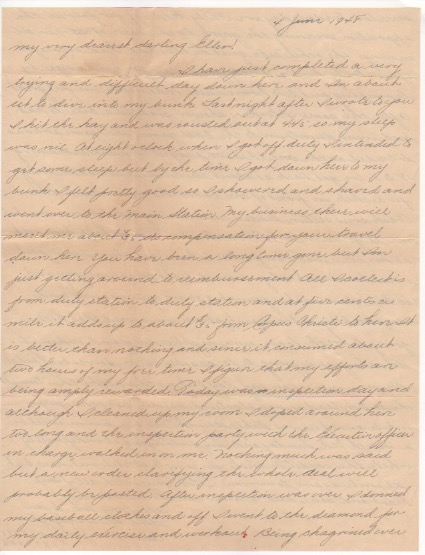 4 June 1948
My very dearest darling Ellen!
I have just completed a very
trying and difficult day down here and I'm about
set to dive into my bunk. Last night after I wrote to you
I hit the hay and was rousted out at 445 so my sleep
was nil. At eight oclock when I got off duty I intended to
get some sleep but by the time I got down here to my
bunk I felt pretty good so I showered and shaved and
went over to the Main Station. My business there will
merit me about as compensation for your travel
down here. You have been a long time gone but I'm
just getting around to reimbursement. All I collect is
from duty station to duty station and at five cents a
mile it adds up to about from Corpus Christi to here. It
is better than nothing and since it consumed about
two hours of my free time I figure that my efforts are
being amply rewarded. Today was inspection day and
although I cleaned up my room I doped around here
too long and the inspection party with the Executive officer
in charge walked in on me. Nothing much was said
but a new order clarifying the whole deal will
probably be posted. After inspection was over I donned
my baseball clothes and off I went to the diamond for
my daily exercise and workout. Being chagrined over